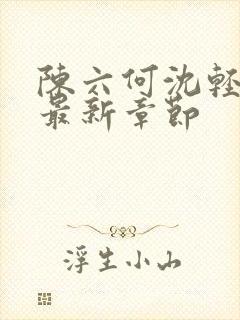 陳六何沈輕
最新章節
浮生小山